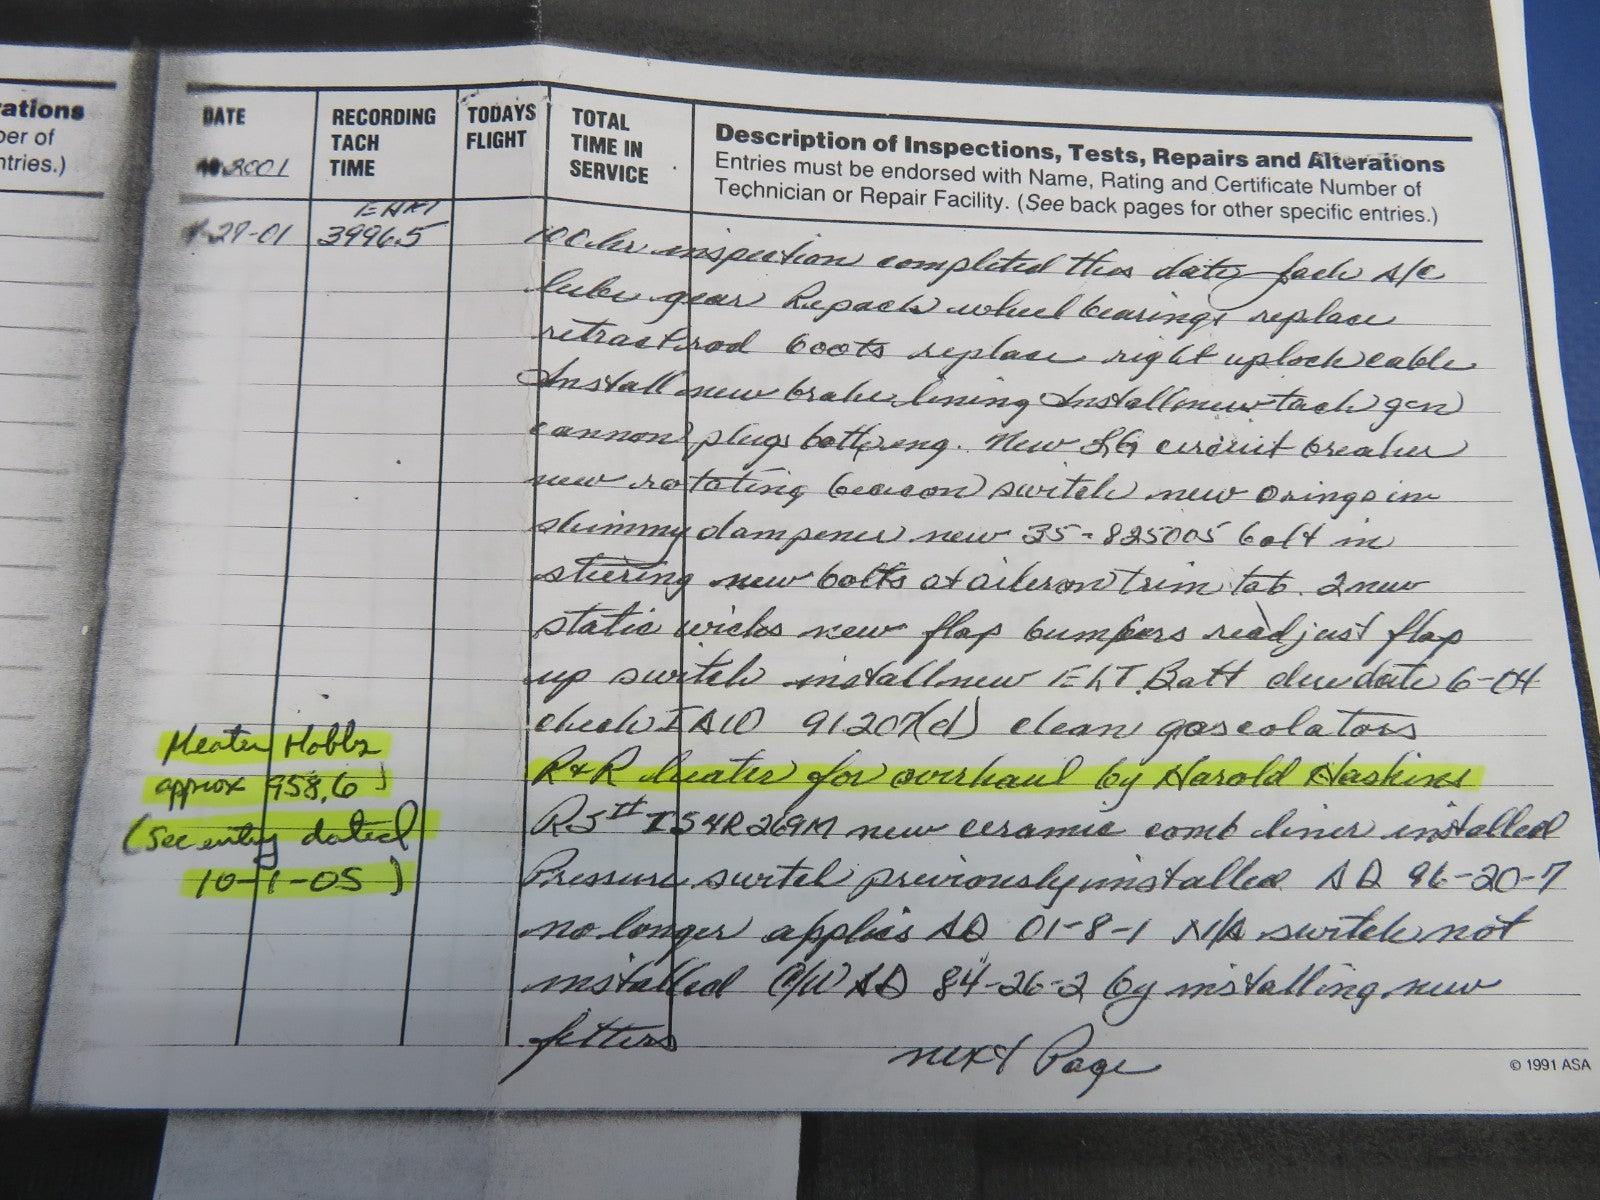 ations
ber of
ntries.)
DATE
2001
RECORDING
TACH
TIME
TODAYS
FLIGHT
TOTAL
TIME IN
SERVICE
Description of Inspections, Tests, Repairs and Alterations
Entries must be endorsed with Name, Rating and Certificate Number of
Technician or Repair Facility. (See back pages for other specific entries.)
-27-01 3996.5 100 hr inspection completed this date jack A/C
lube gear Repack wheel bearings replace
retract rod boots replace right uplock cable
Install new brake lining Install new tach gen
cannon plugs both eng. New LG circuit breaker
new rotating beacon switch new orings in
shimmy dampener new 35-825005 bolt in
steering new bolts at aileron trim tab. 2 new
static wicks new flap bumpers readjust flap
up switch install new ELT Batt due date 6-04
check IAW 91207(d) clean gascolators
R&R heater for overhaul by Harold Haskins
new ceramic comb liner installed
Pressure switch previously installed AD 96-20-7
no longer applies AD 01-8-1 N/A switch not
installed C/W AD 84-26-2 by installing new
filters
next Page
Heater Hobbs
approx 958.6
(See entry dated
10-1-05)
© 1991 ASA